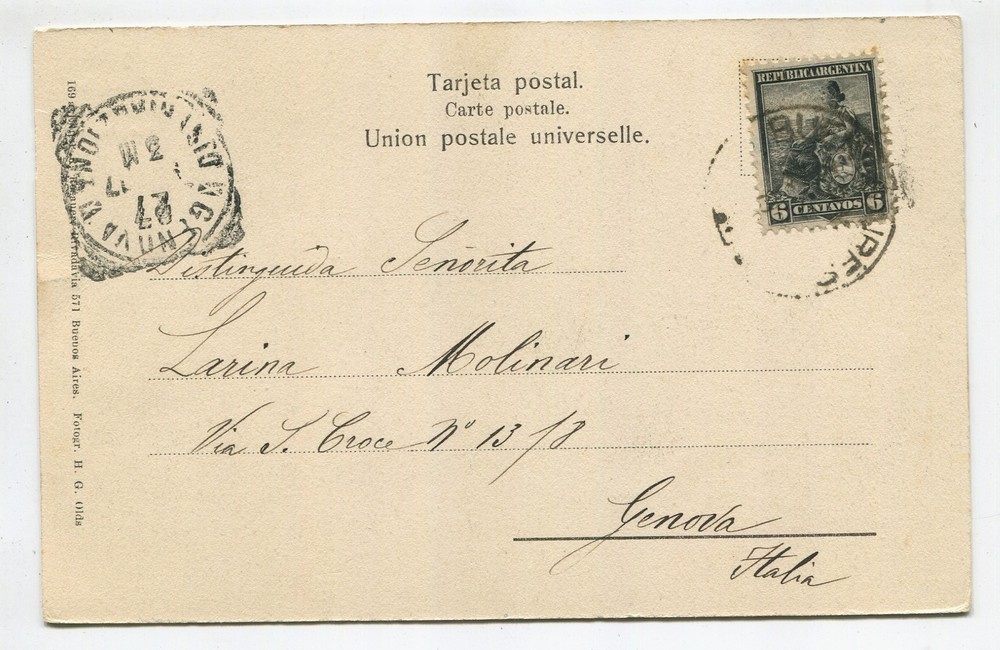 Tarjeta postal.
Carte postale.
Union postale universelle.
REPUBLICA ARGENTINA
6 CENTAVOS 6
Distinguida Señorita
Larina Molinari
Via S. Croce Nº 13/8
Genova
Italia
169
571 Buenos Aires. Fotogr. H. G. Olds
27